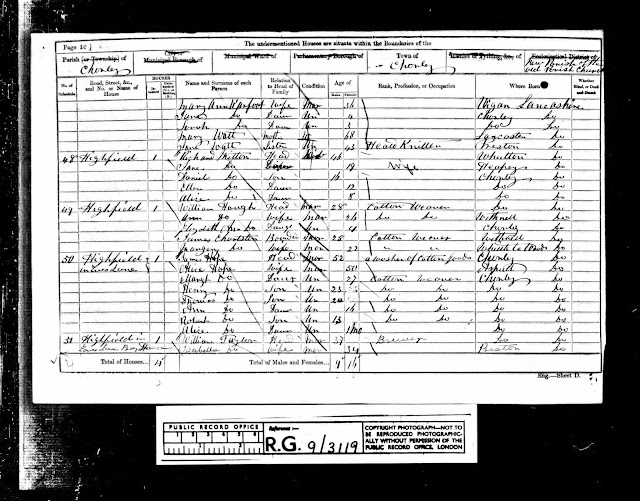 The undermentioned Houses are situate within the Boundaries of the
Page 10
Parish [or Township] of
Chorley
City or
Municipal Borough of
Municipal Ward of
Parliamentary Borough of
Town of
Chorley
Hamlet or Tything, &c., of
Ecclesiastical District of
No. of Schedule
Road, Street, &c., and No. or Name of House
HOUSES
Name and Surname of each Person
Relation to Head of Family
Condition
Age of
Males
Females
Rank, Profession, or Occupation
Where Born
Whether Blind, or Deaf-and-Dumb
Wife Mar 36 Wigan Lancashire
Jane Do Daur Un 4 Chorley Do
Sarah Do Daur Un 3 Do Do
Mary Watt Mother 68 Lancaster Do
Jane Watt Sister Un 43 Heald Knitter Preston Do
48 Highfield 1 Richard Head 46 Do
Jane Do 19 Wife Heapey Do
Daniel Do Son 16 Chorley Do
Ellen Do Daur 12 Do Do
Alice Do Daur 8 Do Do
49 Highfield 1 William Haugh Head Mar 28 Cotton Weaver Do Do
Ann Do Wife Mar 26 Do Do Withnell Do
Elizabeth Ann Do Daug Un 4 Chorley Do
James Boarder Mar 25 Cotton Weaver Withnell Do
Margery Do Wife Mar 22 Whittle le Woods Do
50 Highfield 1 James Hope Head Mar 52 a washer of Cotton goods Chorley Do
Alice Hope Wife Mar 50 Do
Mary Do Daur Un 27 Cotton Weaver Chorley Do
Henry Do Son Un 23 Do Do Do Do
Thomas Do Son Un 20 Do Do Do Do
Ann Do Daur Un 16 Do Do Do Do
Robert Do Son Un 13 Do Do Do Do
Alice Do Daur Un 1 mo Do Do
51 Highfield in 1 William Taylor Head Mar 37 Brewer Do Do
Isabella Do Wife Mar 34 Preston Do
Total of Houses... 4
Total of Males and Females... 9 16
Eng.—Sheet D.
PUBLIC RECORD OFFICE
1 2 3 4 5 6
Reference:-
R.G. 9/3119
COPYRIGHT PHOTOGRAPH-NOT TO BE REPRODUCED PHOTOGRAPHIC-
ALLY WITHOUT PERMISSION OF THE
PUBLIC RECORD OFFICE, LONDON